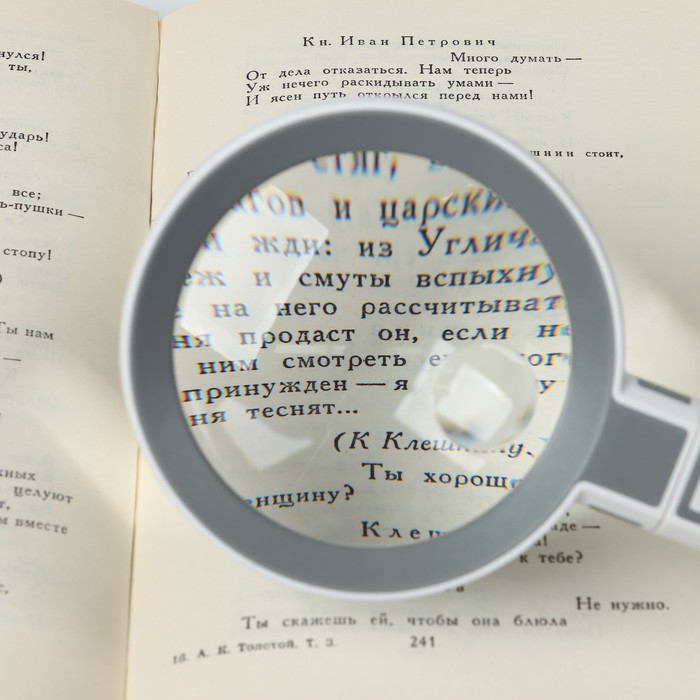 нулся!
ты,
ударь!
са!
все;
ь-пушки —
стопу!
Ты нам
—
жных
целуют
т,
м вместе
Кн. Иван Петрович
Много думать —
От дела отказаться. Нам теперь
Уж нечего раскидывать умами —
И ясен путь открылся перед нами!
шнин стоит,
стяг,
и царский
и жди: из Углича
еж и смуты вспыхну
на него рассчитыват
ня продаст он, если не
ним смотреть
принужден — я
ня теснят...
(К Клешнину.)
Ты хорошо
енщину?
Клеш
аде —
а!
к тебе?
Не нужно.
Ты скажешь ей, чтобы она блюла
16. А. К. Толстой, т. 3. 241